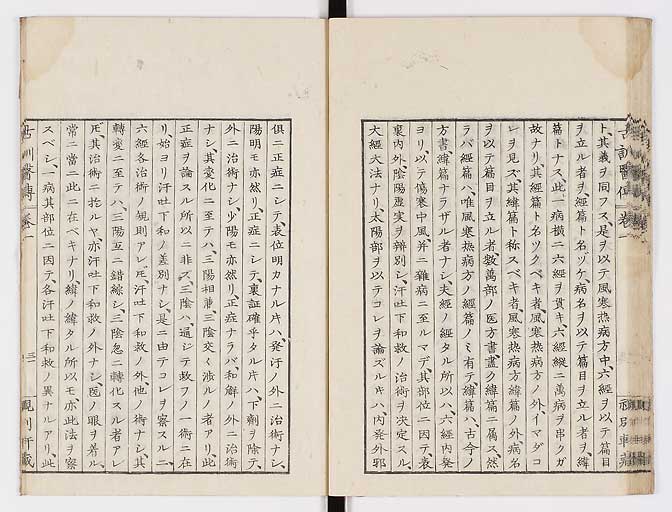 ト、其義ヲ同フス、是ヲ以テ風寒熱病方中、六經ヲ以テ篇目
ヲ立ル者ヲ、經篇ト名ツケ、病名ヲ以テ篇目ヲ立ル者ヲ、緯
篇トナス、此一病橫ニ六經ヲ貫キ、六經縱ニ萬病ヲ串クガ
故ナリ、其經篇ト名ツクベキ者、風寒熱病方ノ外、イマダコ
レヲ見ズ、其緯篇ト称スベキ者、風寒熱病方緯篇ノ外、病名
ヲ以テ篇目ヲ立ル者、數萬部ノ医方書、盡ク緯篇ニ属ス、然
ラバ經篇ハ、唯風寒熱病方ノ經篇ノミ有テ、緯篇ハ、古今ノ
方書、緯篇ナラザル者ナシ、夫經ノ經タル所以ハ、六經内発
ヨリ、以テ傷寒中風并ニ雜病ニ至ルマデ、其部位ニ因テ、表
裏内外陰陽虚実ヲ辨別シ、汗吐下和救ノ治術ヲ決定スル、
大經大法ナリ、太陽部ヲ以テコレヲ論ズルキハ、内発外邪
倶ニ正症ニシテ、表位明カナル片ハ、発汗ノ外ニ治術ナシ、
陽明モ亦然リ、正症ニシテ、裏証確乎タル片ハ、下劑ヲ除テ、
外ニ治術ナシ、少陽モ亦然リ、正症ナラバ和解ノ外ニ治術
ナシ、其変化ニ至テハ、三陽相兼、三陰交々渉ル者アリ、此
正症ヲ論スル所以ニ非ズ、三陰ハ、通シテ救フノ一術ニ在
リ、始ヨリ汗吐下和ノ差別ナシ、是ニ由テコレヲ察スルニ、
六經各治術ノ規則アレ𪜈、汗吐下和救ノ外他ノ術ナシ、其
轉変ニ至テハ、三陽互ニ錯綜シ、三陰忽ニ轉化スル者アレ
𪜈、其治術ニ扵ルヤ、亦汗吐下和救ノ外ナシ、医ノ眼ヲ着ル、
常ニ當ニ此ニ在ベキナリ、緯ノ緯タル所以モ亦此法ヲ察
スベシ、一病其部位ニ因テ、各汗吐下和救ノ異ナルアリ、此
古訓醫傳 卷一